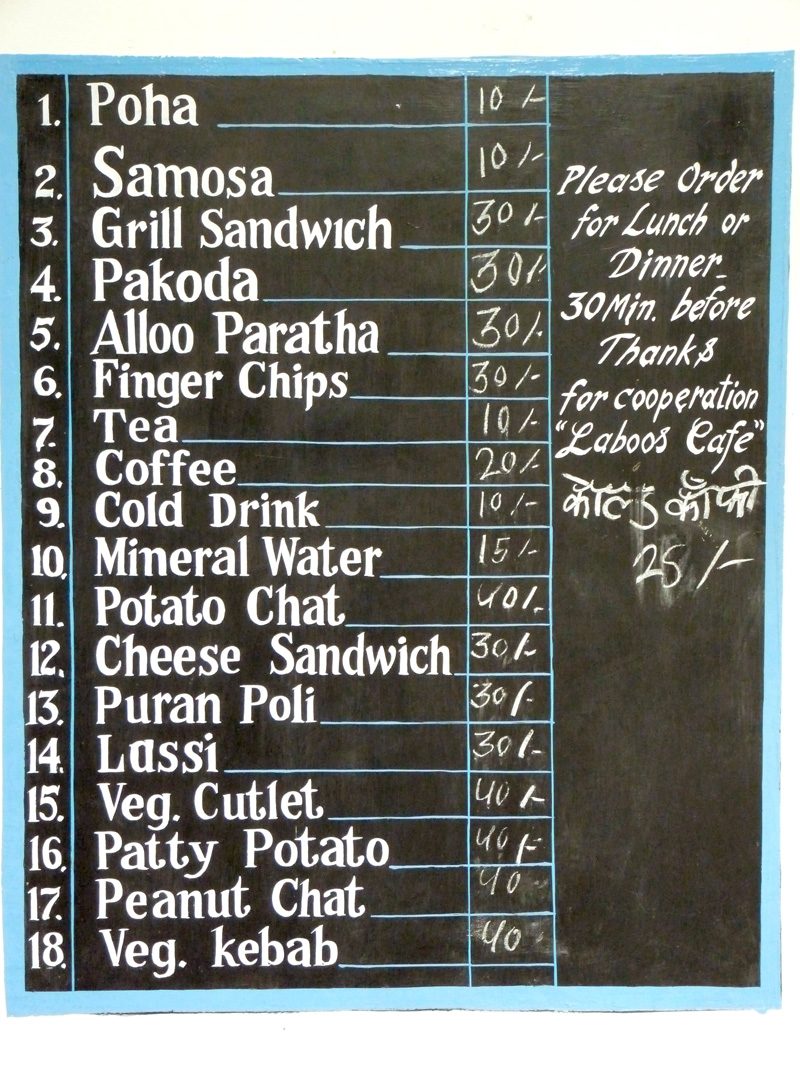 1. Poha 10/-
2. Samosa 10/-
3. Grill Sandwich 30/-
4. Pakoda 30/-
5. Alloo Paratha 30/-
6. Finger Chips 30/-
7. Tea 10/-
8. Coffee 20/-
9. Cold Drink 10/-
10. Mineral Water 15/-
11. Potato Chat 40/-
12. Cheese Sandwich 30/-
13. Puran Poli 30/-
14. Lassi 30/-
15. Veg. Cutlet 40/-
16. Patty Potato 40/-
17. Peanut Chat 40
18. Veg. kebab 40
Please Order
for Lunch or
Dinner
30 Min. before
Thanks
for cooperation
"Laboos Cafe"
कोल्ड कॉफी
25/-